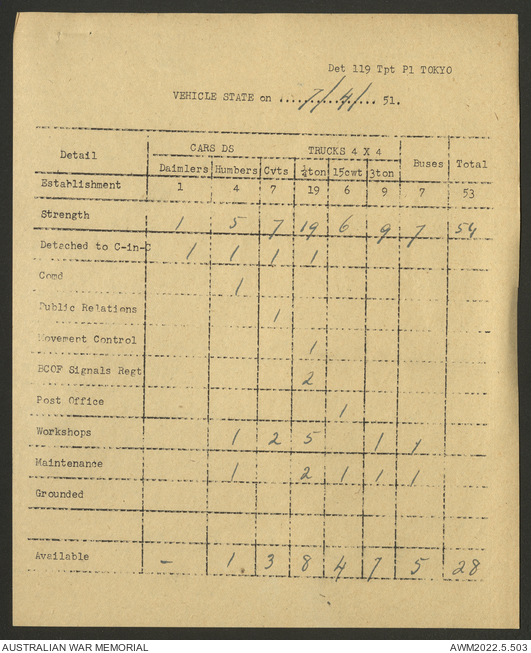 Det 119 Tpt Pl TOKYO
VEHICLE STATE on ....7/4/.... 51.
Detail CARS DS TRUCKS 4 X 4 Buses Total
Daimlers Humbers Cvts ¼ton 15cwt 3ton
Establishment 1 4 7 19 6 9 7 53
Strength 1 5 7 19 6 9 7 54
Detached to C-in-C 1 1 1 1
Comd 1
Public Relations 1
Movement Control 1
BCOF Signals Regt 2
Post Office 1
Workshops 1 2 5 1 1
Maintenance 1 2 1 1 1
Grounded
Available - 1 3 8 4 7 5 28
AUSTRALIAN WAR MEMORIAL AWM2022.5.503